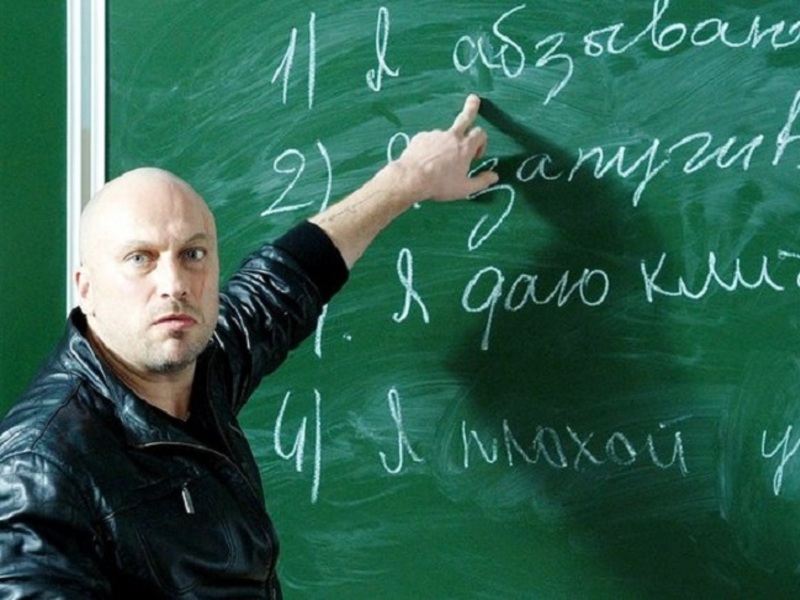 1) Я абзываю
2) Я запугив
Я даю клич
4) Я плохой у